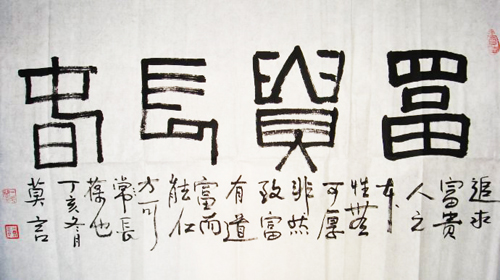 富貴長春
追求
富貴
人之
本
性無
可厚
非然
致富
有道
富而
能仁
方可
常長
葆也
丁亥冬月
莫言